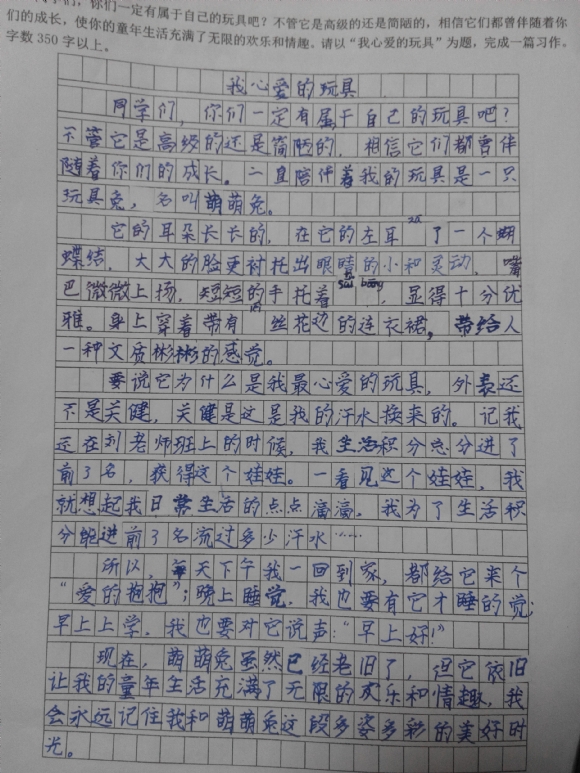 们，你们一定有属于自己的玩具吧？不管它是高级的还是简陋的，相信它们都曾伴随着你
们的成长，使你的童年生活充满了无限的欢乐和情趣。请以“我心爱的玩具”为题，完成一篇习作。
字数350字以上。
我心爱的玩具
同学们，你们一定有属于自己的玩具吧？
不管它是高级的还是简陋的，相信它们都曾伴
随着你们的成长。一直陪伴着我的玩具是一只
玩具兔，名叫萌萌兔。
它的耳朵长长的，在它的左耳 za 了一个蝴
蝶结，大大的脸更衬托出眼睛的小和灵动，嘴
巴微微上扬，短短的手托着 sai bang，显得十分优
雅。身上穿着带有 丝花边的连衣裙，带给人
一种文质彬彬的感觉。
要说它为什么是我最心爱的玩具，外表还
不是关健，关健是这是我的汗水换来的。记我
还在刘老师班上的时候，我生活积分总分进了
前3名，获得这个娃娃。一看见这个娃娃，我
就想起我日常生活的点点滴滴，我为了生活积
分能进前3名流过多少汗水……
所以，每天下午我一回到家，都给它来个
“爱的抱抱”；晚上睡觉，我也要有它才睡的觉；
早上上学，我也要对它说声：“早上好！”
现在，萌萌兔虽然已经老旧了，但它依旧
让我的童年生活充满了无限的欢乐和情趣，我
会永远记住我和萌萌兔这段多姿多彩的美好时
光。